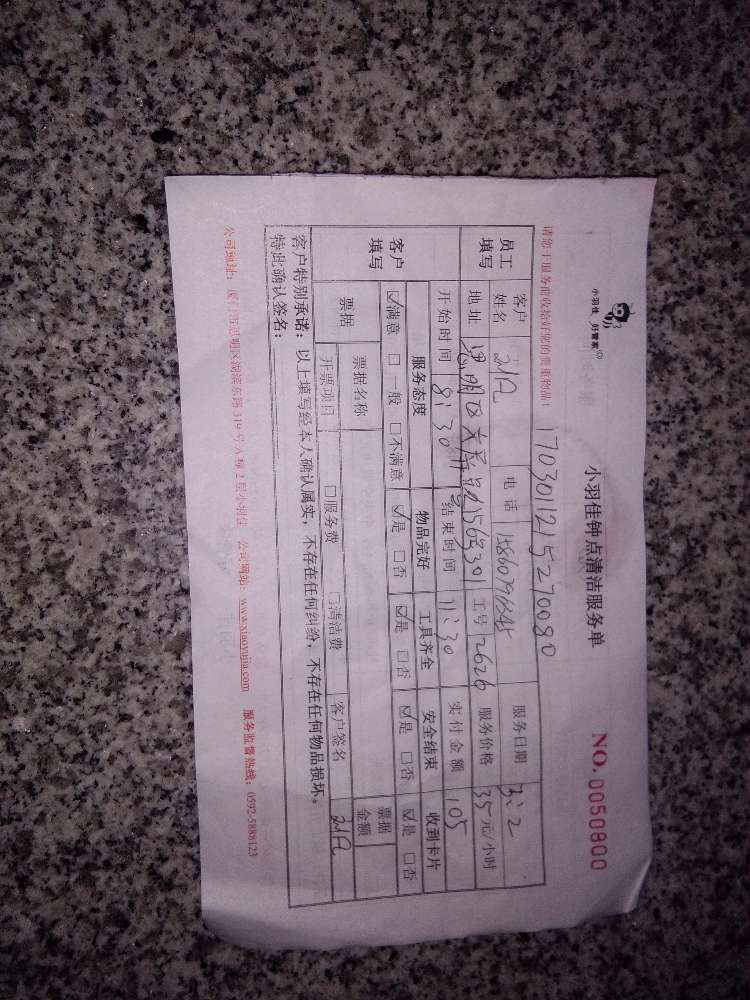 小羽佳 好管家
小羽佳钟点清洁服务单
NO. 0050800
请您于服务前收拾好您的贵重物品!
1703011215270080
员工填写 客户姓名 电话 服务日期 3:2
地址 思明区 工号 2626 服务价格 35元/小时
开始时间 8:30 结束时间 11:30 实付金额 105
客户填写 服务态度 物品完好 工具齐全 安全结束 收到卡片
☑满意 □一般 □不满意 ☑是 □否 ☑是 □否 ☑是 □否 ☑是 □否
票据 票据名称 票据金额
开票项目 □服务费 □清洁费 客户签名
客户特别承诺: 以上填写经本人确认属实,不存在任何纠纷,不存在任何物品损坏。
特此确认签名:
公司地址: 厦门市思明区湖滨东路 319 号 A 幢 2 层小羽佳 公司网站: www.xiaoyujia.com 服务监督热线: 0592-5888123